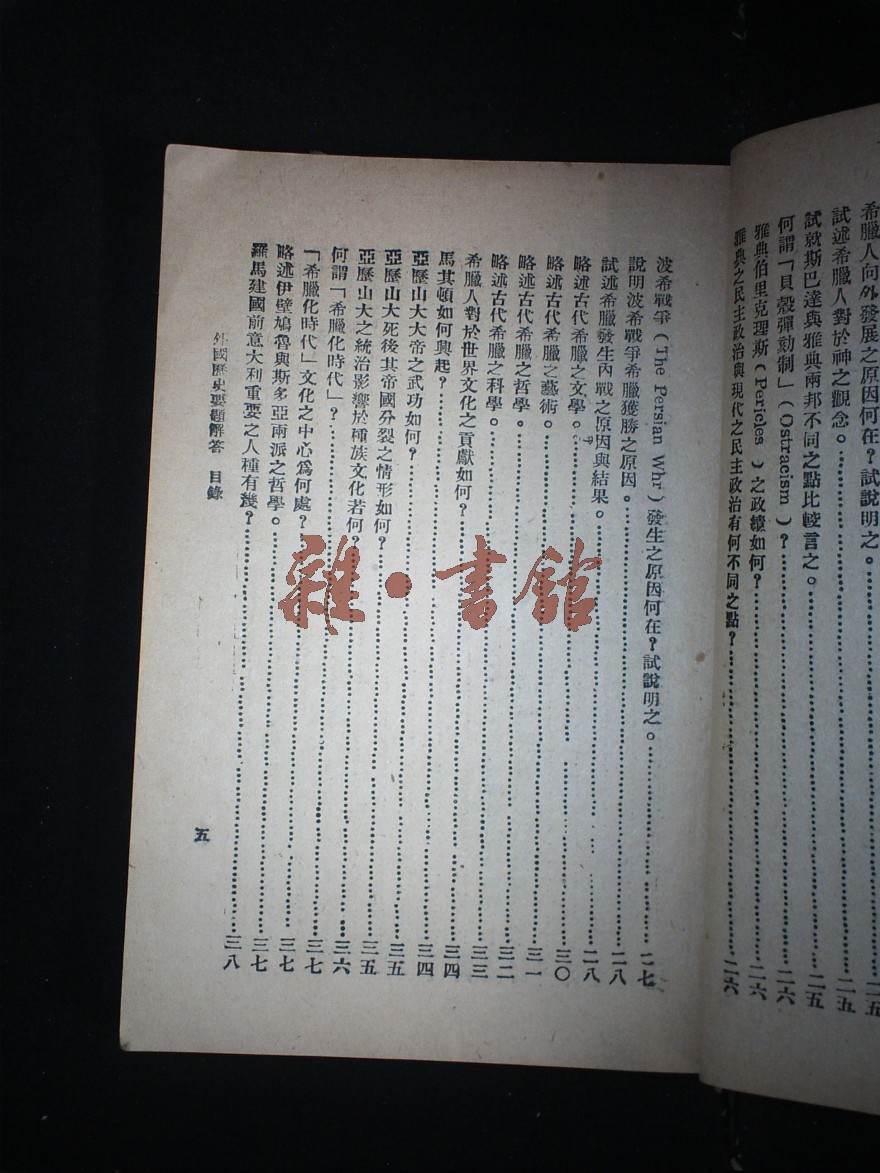 希臘人向外發展之原因何在？試說明之。……二五
試述希臘人對於神之觀念。……二五
試就斯巴達與雅典兩邦不同之點比較言之。……二五
何謂「貝殼彈劾制」(Ostracism)？……二六
雅典伯里克理斯(Pericles)之政績如何？……二六
雅典之民主政治與現代之民主政治有何不同之點？……二六
波希戰爭(The Persian Whr)發生之原因何在？試說明之。……二七
說明波希戰爭希臘獲勝之原因。……二八
試述希臘發生內戰之原因與結果。……二八
略述古代希臘之文學。……三〇
略述古代希臘之藝術。……三一
略述古代希臘之哲學。……三二
略述古代希臘之科學。……三三
希臘人對於世界文化之貢獻如何？……三四
馬其頓如何興起？……三四
亞歷山大大帝之武功如何？……三五
亞歷山大死後其帝國分裂之情形如何？……三五
亞歷山大之統治影響於種族文化若何？……三六
何謂「希臘化時代」？……三七
「希臘化時代」文化之中心為何處？……三七
略述伊壁鳩魯與斯多亞兩派之哲學。……三七
羅馬建國前意大利重要之人種有幾？……三八
外國歷史要題解答 目錄
五
雜·書館